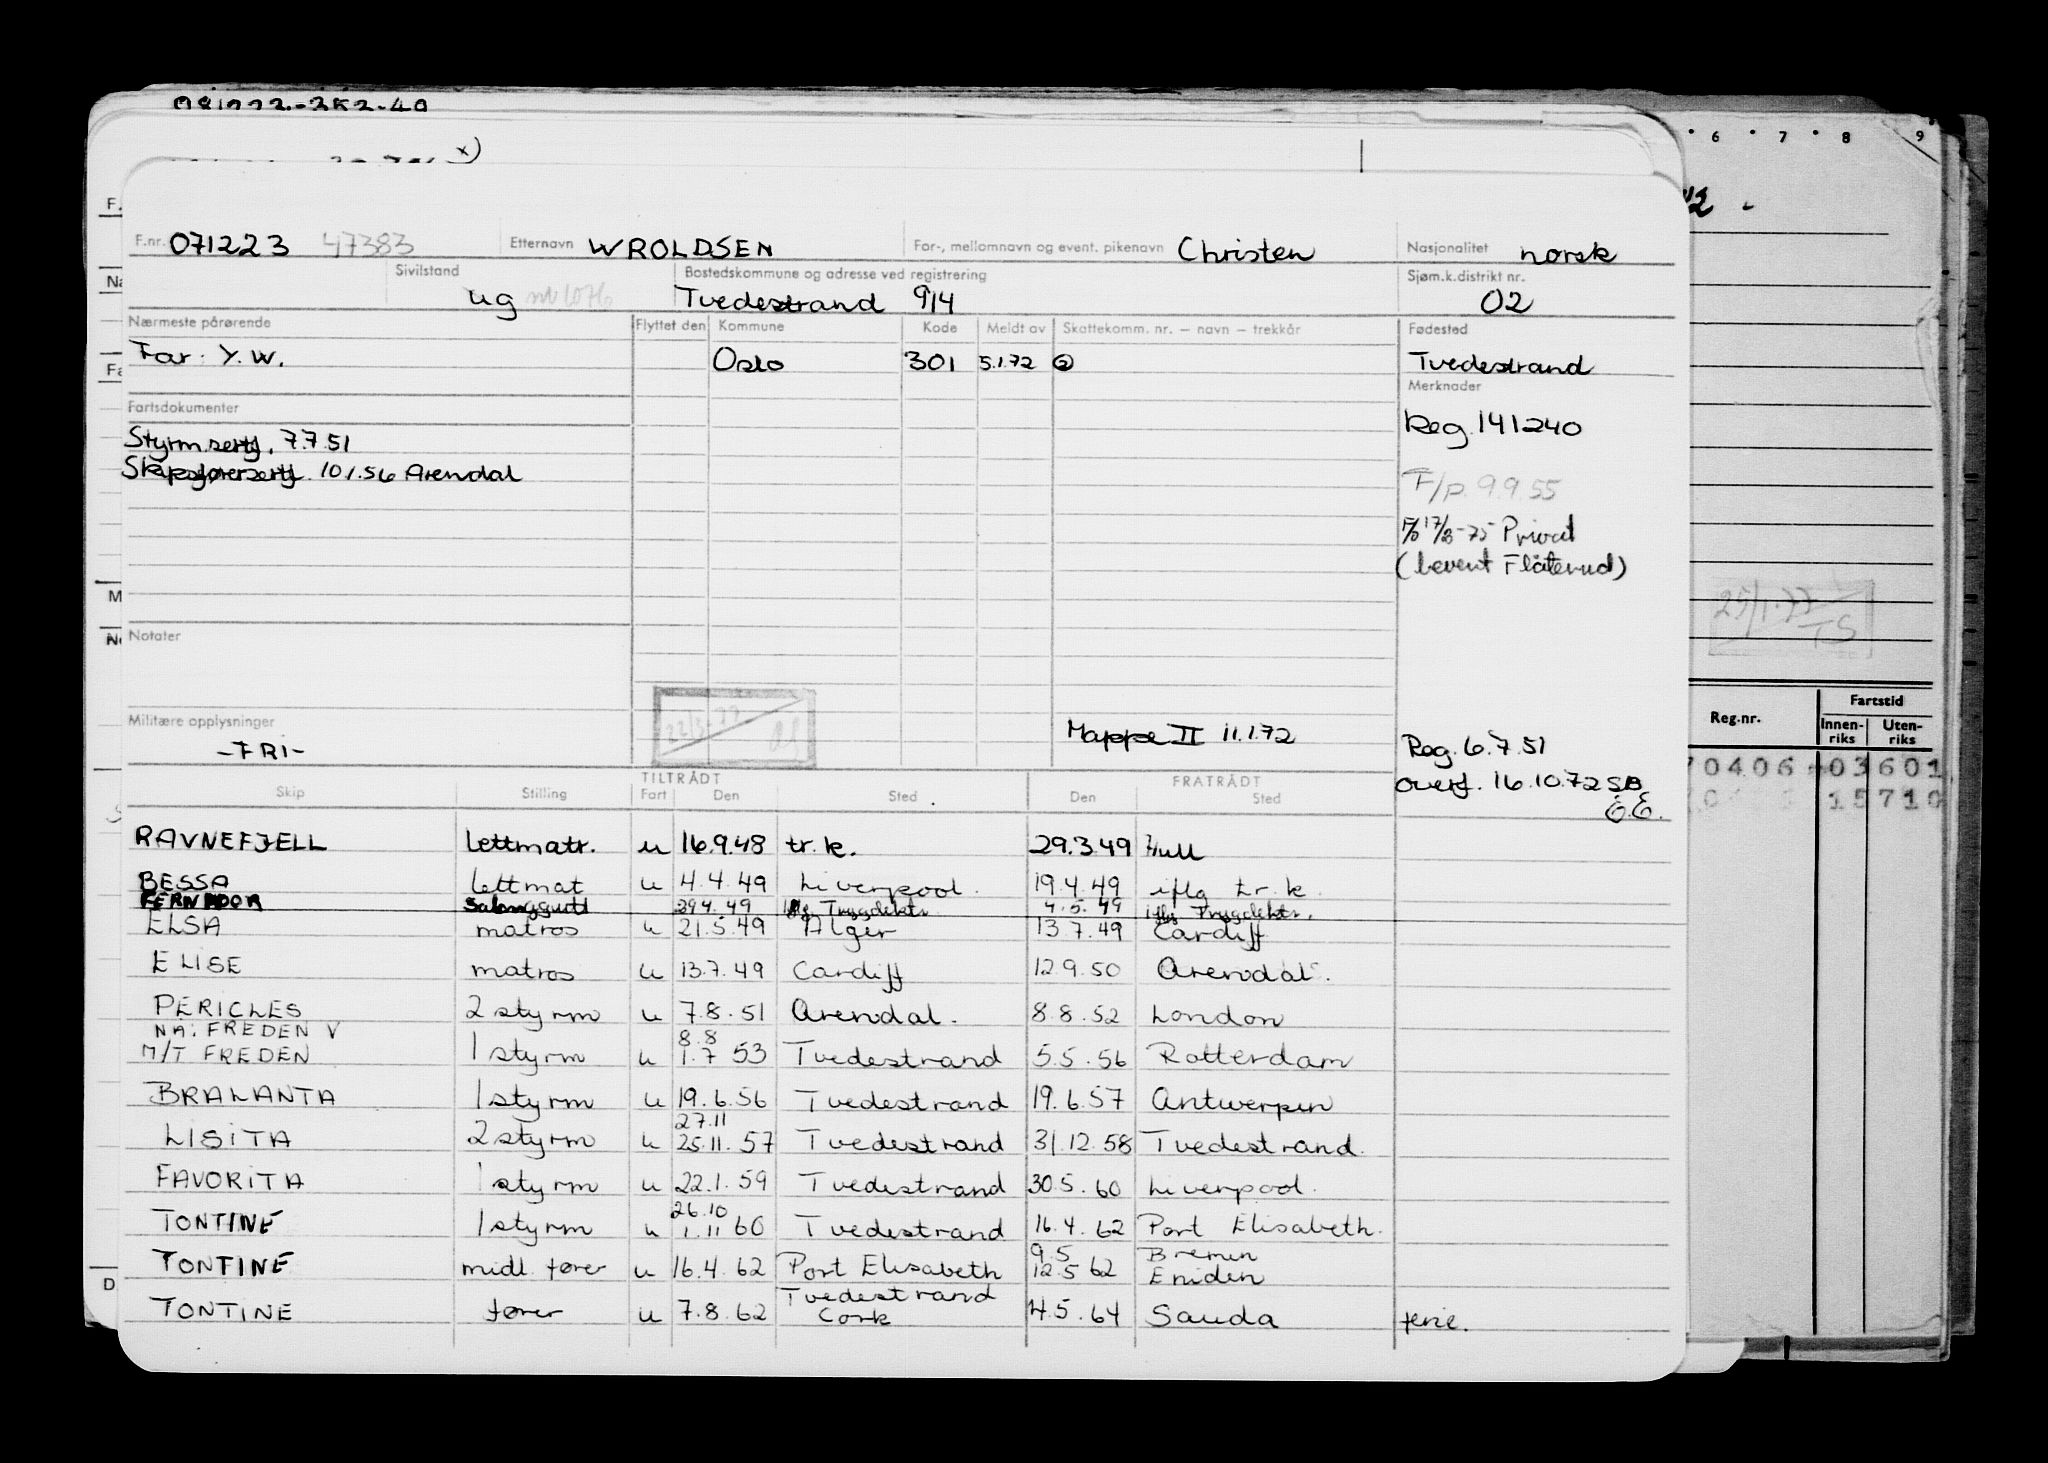 6 7 8 9
F.nr. 071223 47383 Etternavn WROLDSEN For-, mellomnavn og event. pikenavn Christen Nasjonalitet norsk
Sivilstand ug Bostedskommune og adresse ved registrering Tvedestrand 914 Sjøm.k.distrikt nr. 02
Nærmeste pårørende Flyttet den Kommune Kode Meldt av Skattekomm. nr. – navn – trekkår Fødested
Far: Y. W. Oslo 301 5.1.72 Tvedestrand
Fartsdokumenter Merknader
Styrm.sertf. 7.7.51 Reg. 141240
Skipsførersertf. 10 1.56 Arendal
F/p. 9.9.55
F/p 17/8-75 Privat
(bevent Flåterud)
Notater
25/1.77
TS
Militære opplysninger
-FRI- 22/3-77 Mappe II 11.1.72 Reg. 6.7.51
overf. 16.10.72 SB
E.E.
Reg.nr. Fartstid
Innen-riks Uten-riks
70406 03601
15710
TILTRÅDT FRATRÅDT
Skip Stilling Fart Den Sted Den Sted
RAVNEFJELL lettmatr. u 16.9.48 tr.k. 29.3.49 Hull
BESSA lettmat u 4.4.49 Liverpool. 19.4.49 iflg tr.k.
FERNMOOR Salonggutt 29 4.49 iflg. Trygdektr. 4.5.49 iflg Trygdektr.
ELSA matros u 21.5.49 Alger 13.7.49 Cardiff
ELISE matros u 13.7.49 Cardiff 12.9.50 Arendal.
PERICLES 2 styrm u 7.8.51 Arendal. 8.8.52 London
NA: FREDEN V 8.8
M/T FREDEN 1 styrm u 1.7 53 Tvedestrand 5.5.56 Rotterdam
BRALANTA 1 styrm u 19.6.56 Tvedestrand 19.6.57 Antwerpen
27.11
LISITA 2 styrm u 25.11.57 Tvedestrand 31.12.58 Tvedestrand.
FAVORITA 1 styrm u 22.1.59 Tvedestrand 30.5.60 Liverpool.
26.10
TONTINE 1 styrm u 1.11 60 Tvedestrand 16.4.62 Port Elisabeth.
9.5 Bremen
TONTINE midl. fører u 16.4.62 Port Elisabeth 12.5 62 Emden
Tvedestrand
TONTINE fører u 7.8.62 Cork 4.5.64 Sauda ferie.